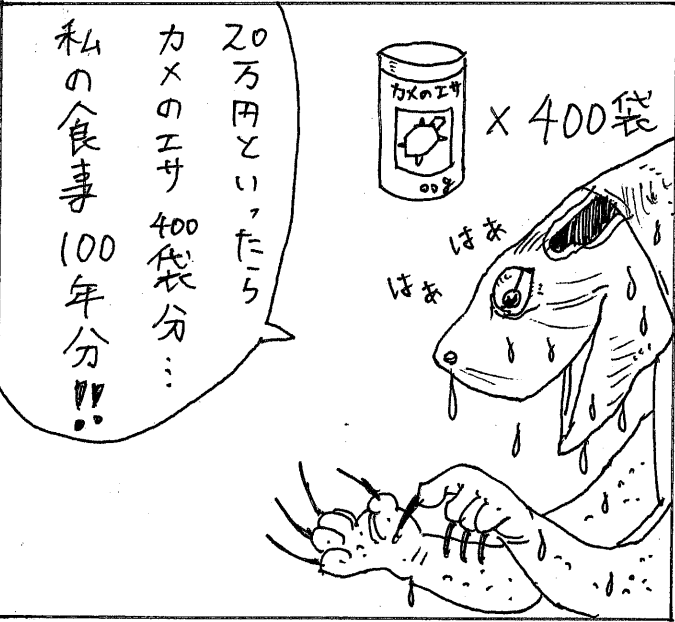 20万円といったら
カメのエサ400袋分…
私の食事100年分!!
カメのエサ
00g
×400袋
はぁ
はぁ